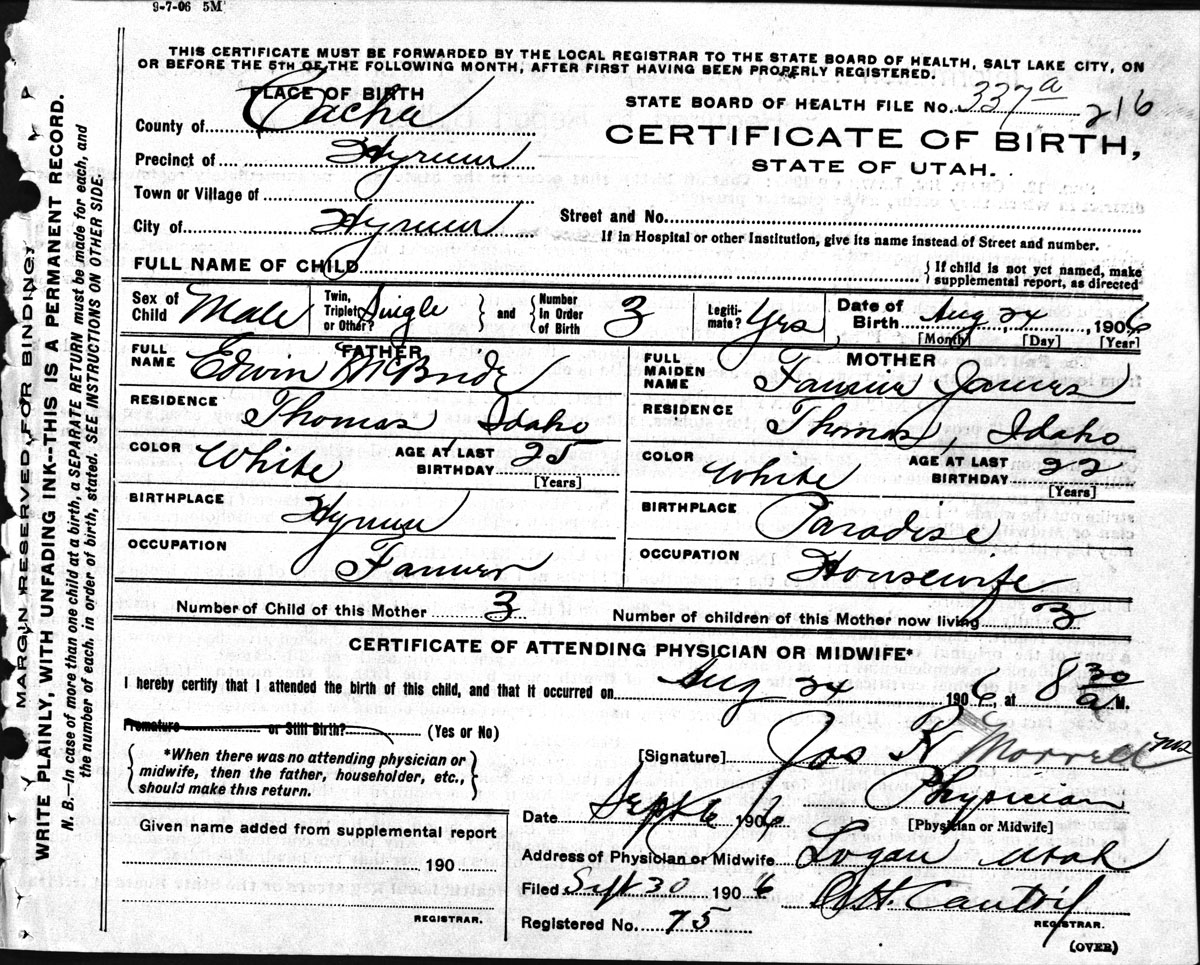 9-7-06 5M
THIS CERTIFICATE MUST BE FORWARDED BY THE LOCAL REGISTRAR TO THE STATE BOARD OF HEALTH, SALT LAKE CITY, ON
OR BEFORE THE 5TH OF THE FOLLOWING MONTH, AFTER FIRST HAVING BEEN PROPERLY REGISTERED.
PLACE OF BIRTH
STATE BOARD OF HEALTH FILE No. 337a 216
County of Cache
CERTIFICATE OF BIRTH,
STATE OF UTAH.
Precinct of Hyrum
Town or Village of
City of Hyrum
Street and No.
If in Hospital or other Institution, give its name instead of Street and number.
FULL NAME OF CHILD
If child is not yet named, make
supplemental report, as directed
Sex of Child Male
Twin, Triplet, or Other? Single
and Number In Order of Birth 3
Legiti-mate? Yes
Date of Birth Aug 24, 1906
[Month] [Day] [Year]
FATHER
FULL NAME Edwin McBride
RESIDENCE Thomas Idaho
COLOR White AGE AT LAST BIRTHDAY 25
[Years]
BIRTHPLACE Hyrum
OCCUPATION Farmer
MOTHER
FULL MAIDEN NAME Fannie James
RESIDENCE Thomas, Idaho
COLOR White AGE AT LAST BIRTHDAY 22
[Years]
BIRTHPLACE Paradise
OCCUPATION Housewife
Number of Child of this Mother 3 Number of children of this Mother now living 3
CERTIFICATE OF ATTENDING PHYSICIAN OR MIDWIFE*
I hereby certify that I attended the birth of this child, and that it occurred on Aug 24 1906, at 8 30 a M.
Premature or Still Birth? (Yes or No)
*When there was no attending physician or
midwife, then the father, householder, etc.,
should make this return.
[Signature] Jos R Morrell MD
Physician
[Physician or Midwife]
Date Sept 6 1906
Address of Physician or Midwife Logan Utah
Filed Sept 30 1906
REGISTRAR.
Registered No. 75
(OVER)
Given name added from supplemental report
190
REGISTRAR.
MARGIN RESERVED FOR BINDING.
WRITE PLAINLY, WITH UNFADING INK--THIS IS A PERMANENT RECORD.
N. B.—In case of more than one child at a birth, a SEPARATE RETURN must be made for each, and
the number of each. in order of birth, stated. SEE INSTRUCTIONS ON OTHER SIDE.